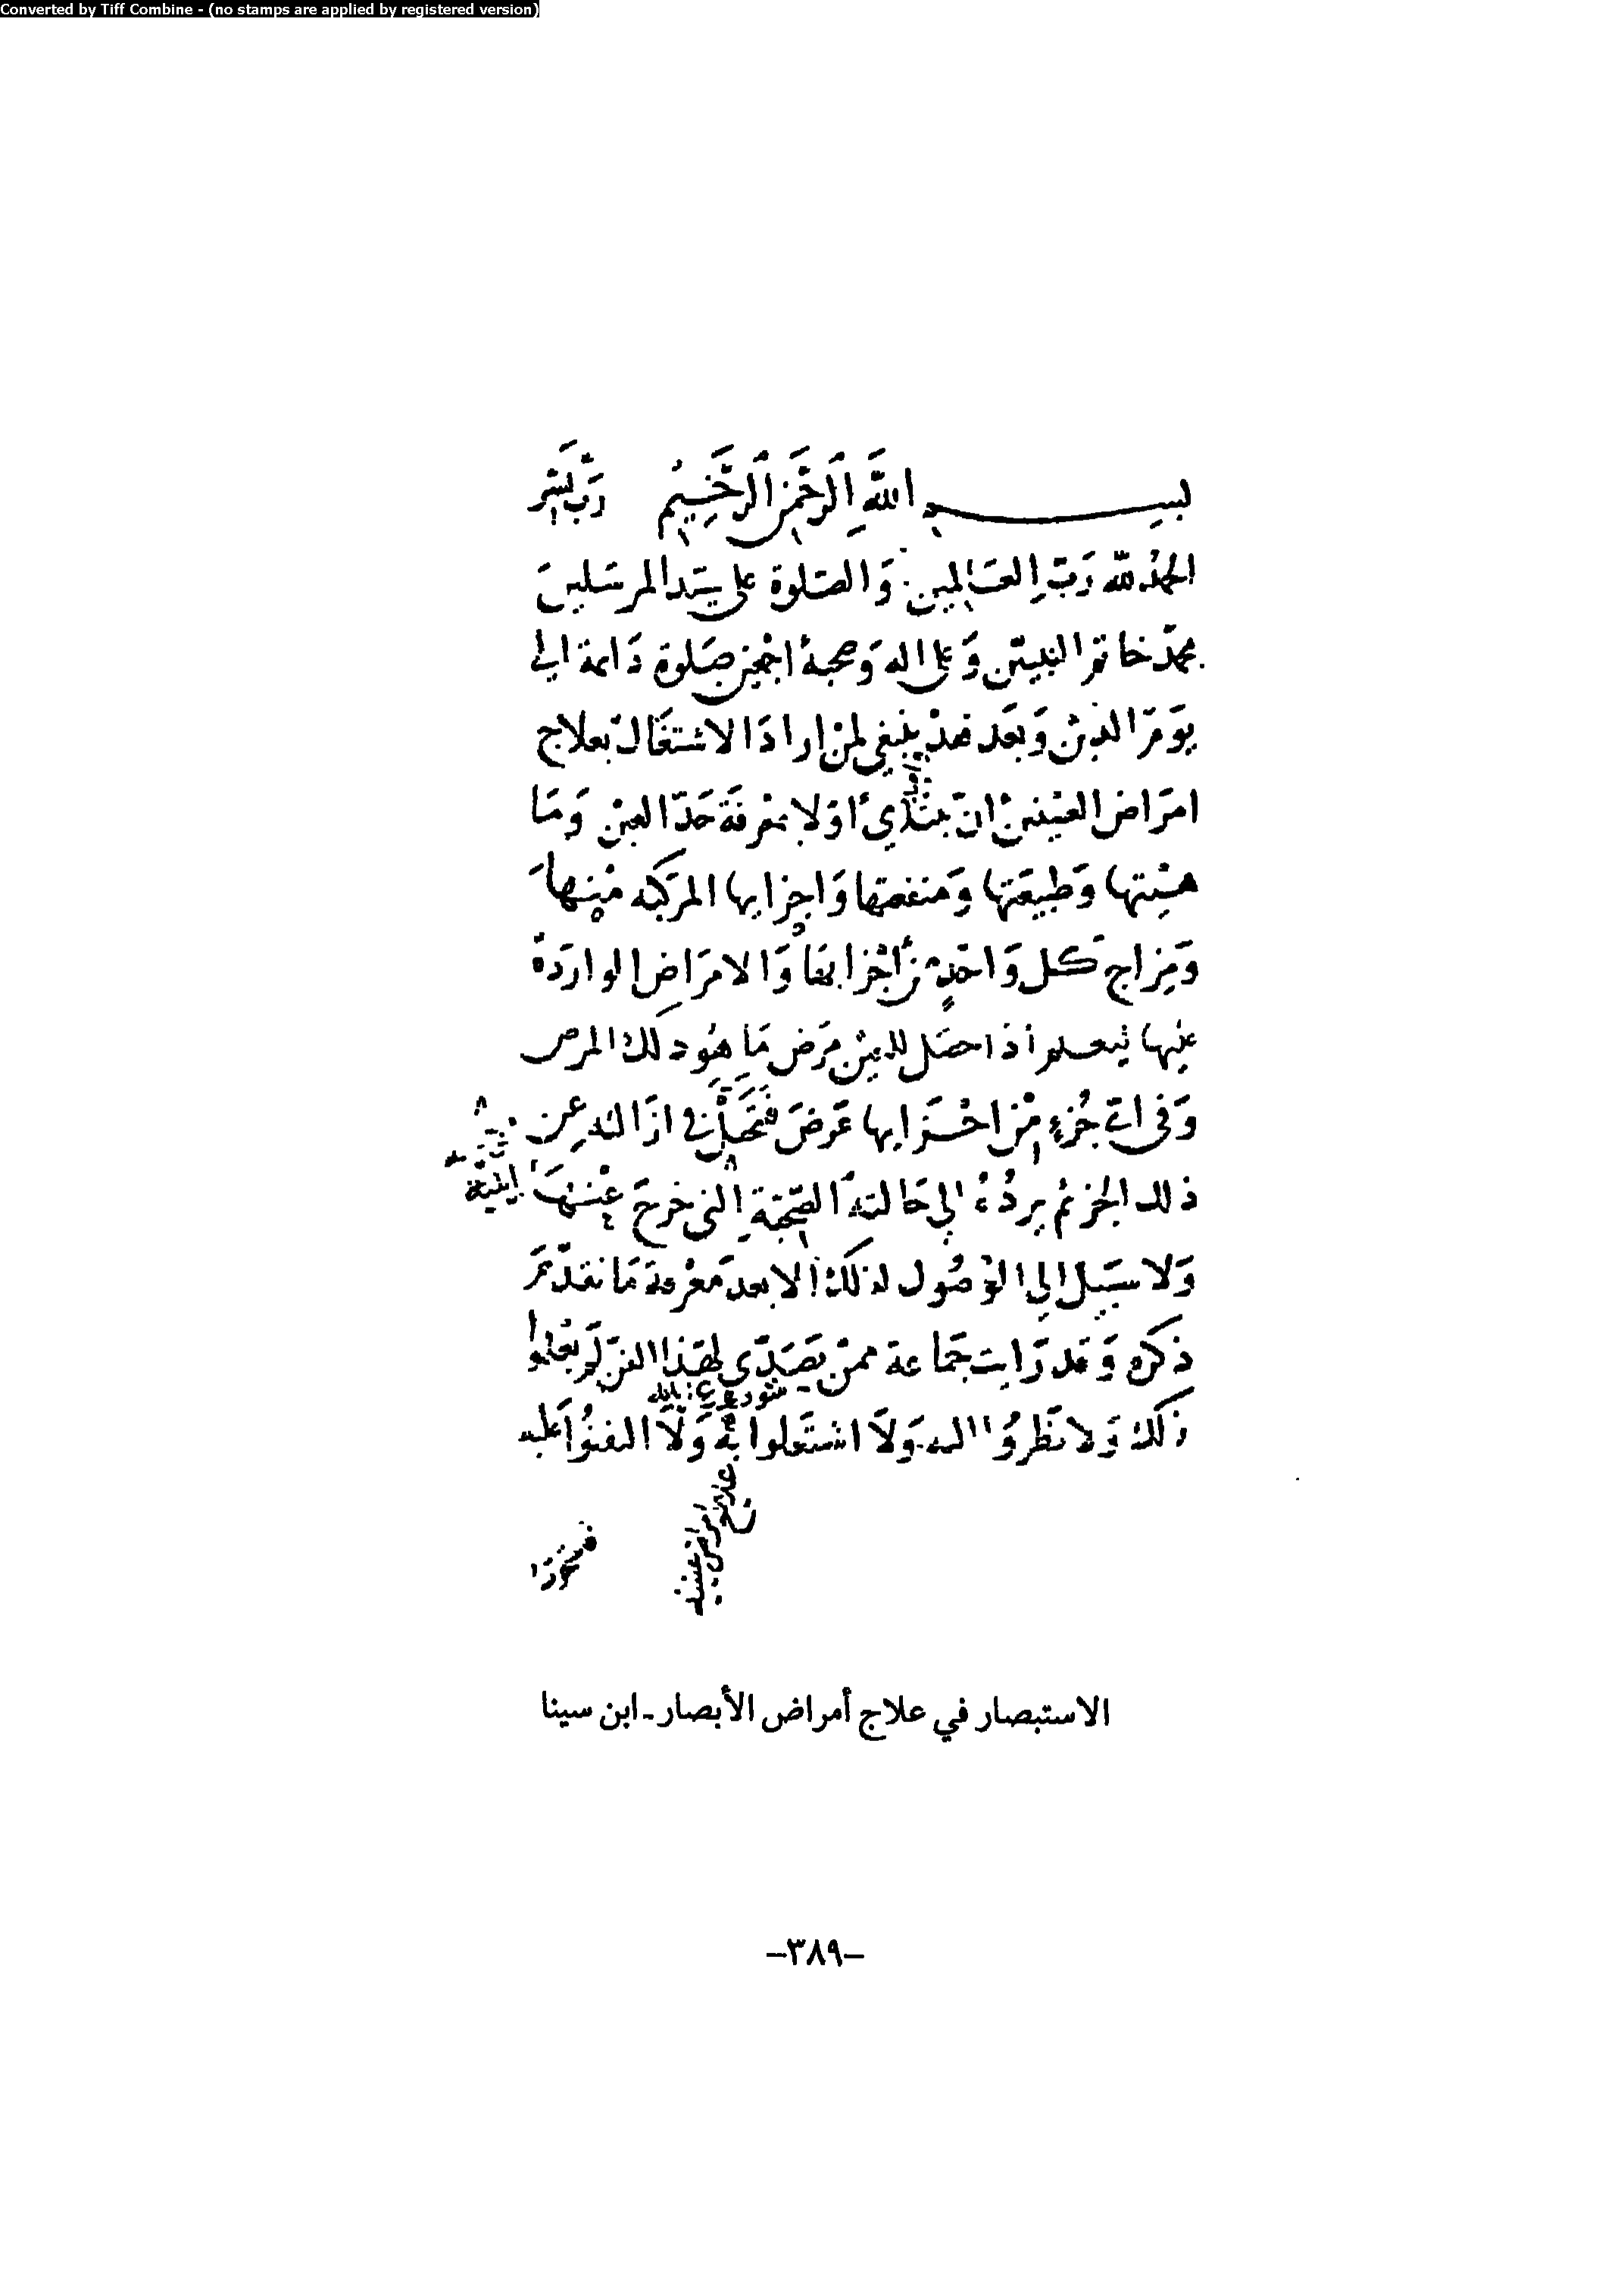 Converted by Tiff Combine - (no stamps are applied by registered version)
بسم الله الرحمن الرحيم رب يسر
الحمد لله رب العالمين والصلوة على سيد المرسلين
محمد خاتم النبيين وعلى اله وصحبه اجمعين صلوة دائمة الى
يوم الدين وبعد فقد ينبغي لمن اراد الاشتغال بعلاج
امراض العينين ان يبتدي أولا بمعرفة حد العين وما
هيئتها وطبيعتها ومنفعتها واجزايها المركبه منها
ومزاج كل واحد من أجزايها والامراض الواردة
عليها ليعلم أذا حصل للعين مرض ما هو ذلك المرض
وفى اي جزء من اجزايها عرض في ازالته عن
ذلك الجزء ثم يرده الى حالته الصحية التى خرج عنها
ولا سبيل الى الوصول لذلك الا بعد معرفة ما تقدم
ذكره وقد رايت جماعة ممن تصدى لهذا الفن لم يعلموا
ذلك ولا نظروا اليه ولا اشتغلوا به ولا التفتوا عليه
علاج امراض
الاستبصار في علاج أمراض الأبصار ـ ابن سينا
–٣٨٩–